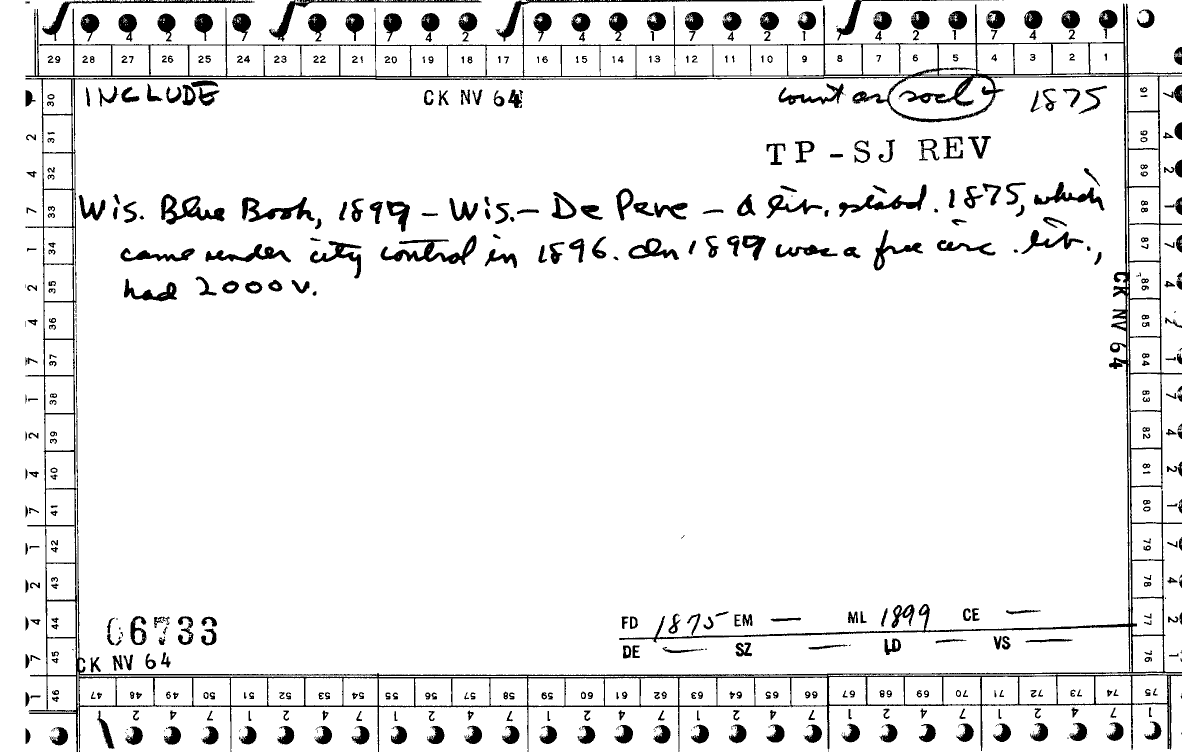 7 4 2 1 7 4 2 1 7 4 2 1 7 4 2 1 7 4 2 1 7 4 2 1 7 4 2 1
29 28 27 26 25 24 23 22 21 20 19 18 17 16 15 14 13 12 11 10 9 8 7 6 5 4 3 2 1
INCLUDE CK NV 64 count as socl 1875
TP-SJ REV
Wis. Blue Book, 1899 - Wis. - De Pere - A lib. establ. 1875, which
came under city control in 1896. In 1899 was a free circ. lib.,
had 2000 v.
CK NV 64
06733
CK NV 64
FD 1875 EM — ML 1899 CE —
DE — SZ — LD — VS —
30 31 32 33 34 35 36 37 38 39 40 41 42 43 44 45 46
91 90 89 88 87 86 85 84 83 82 81 80 79 78 77 76
47 48 49 50 51 52 53 54 55 56 57 58 59 60 61 62 63 64 65 66 67 68 69 70 71 72 73 74 75
1 2 4 7 1 2 4 7 1 2 4 7 1 2 4 7 1 2 4 7 1 2 4 7 1 2 4 7 1